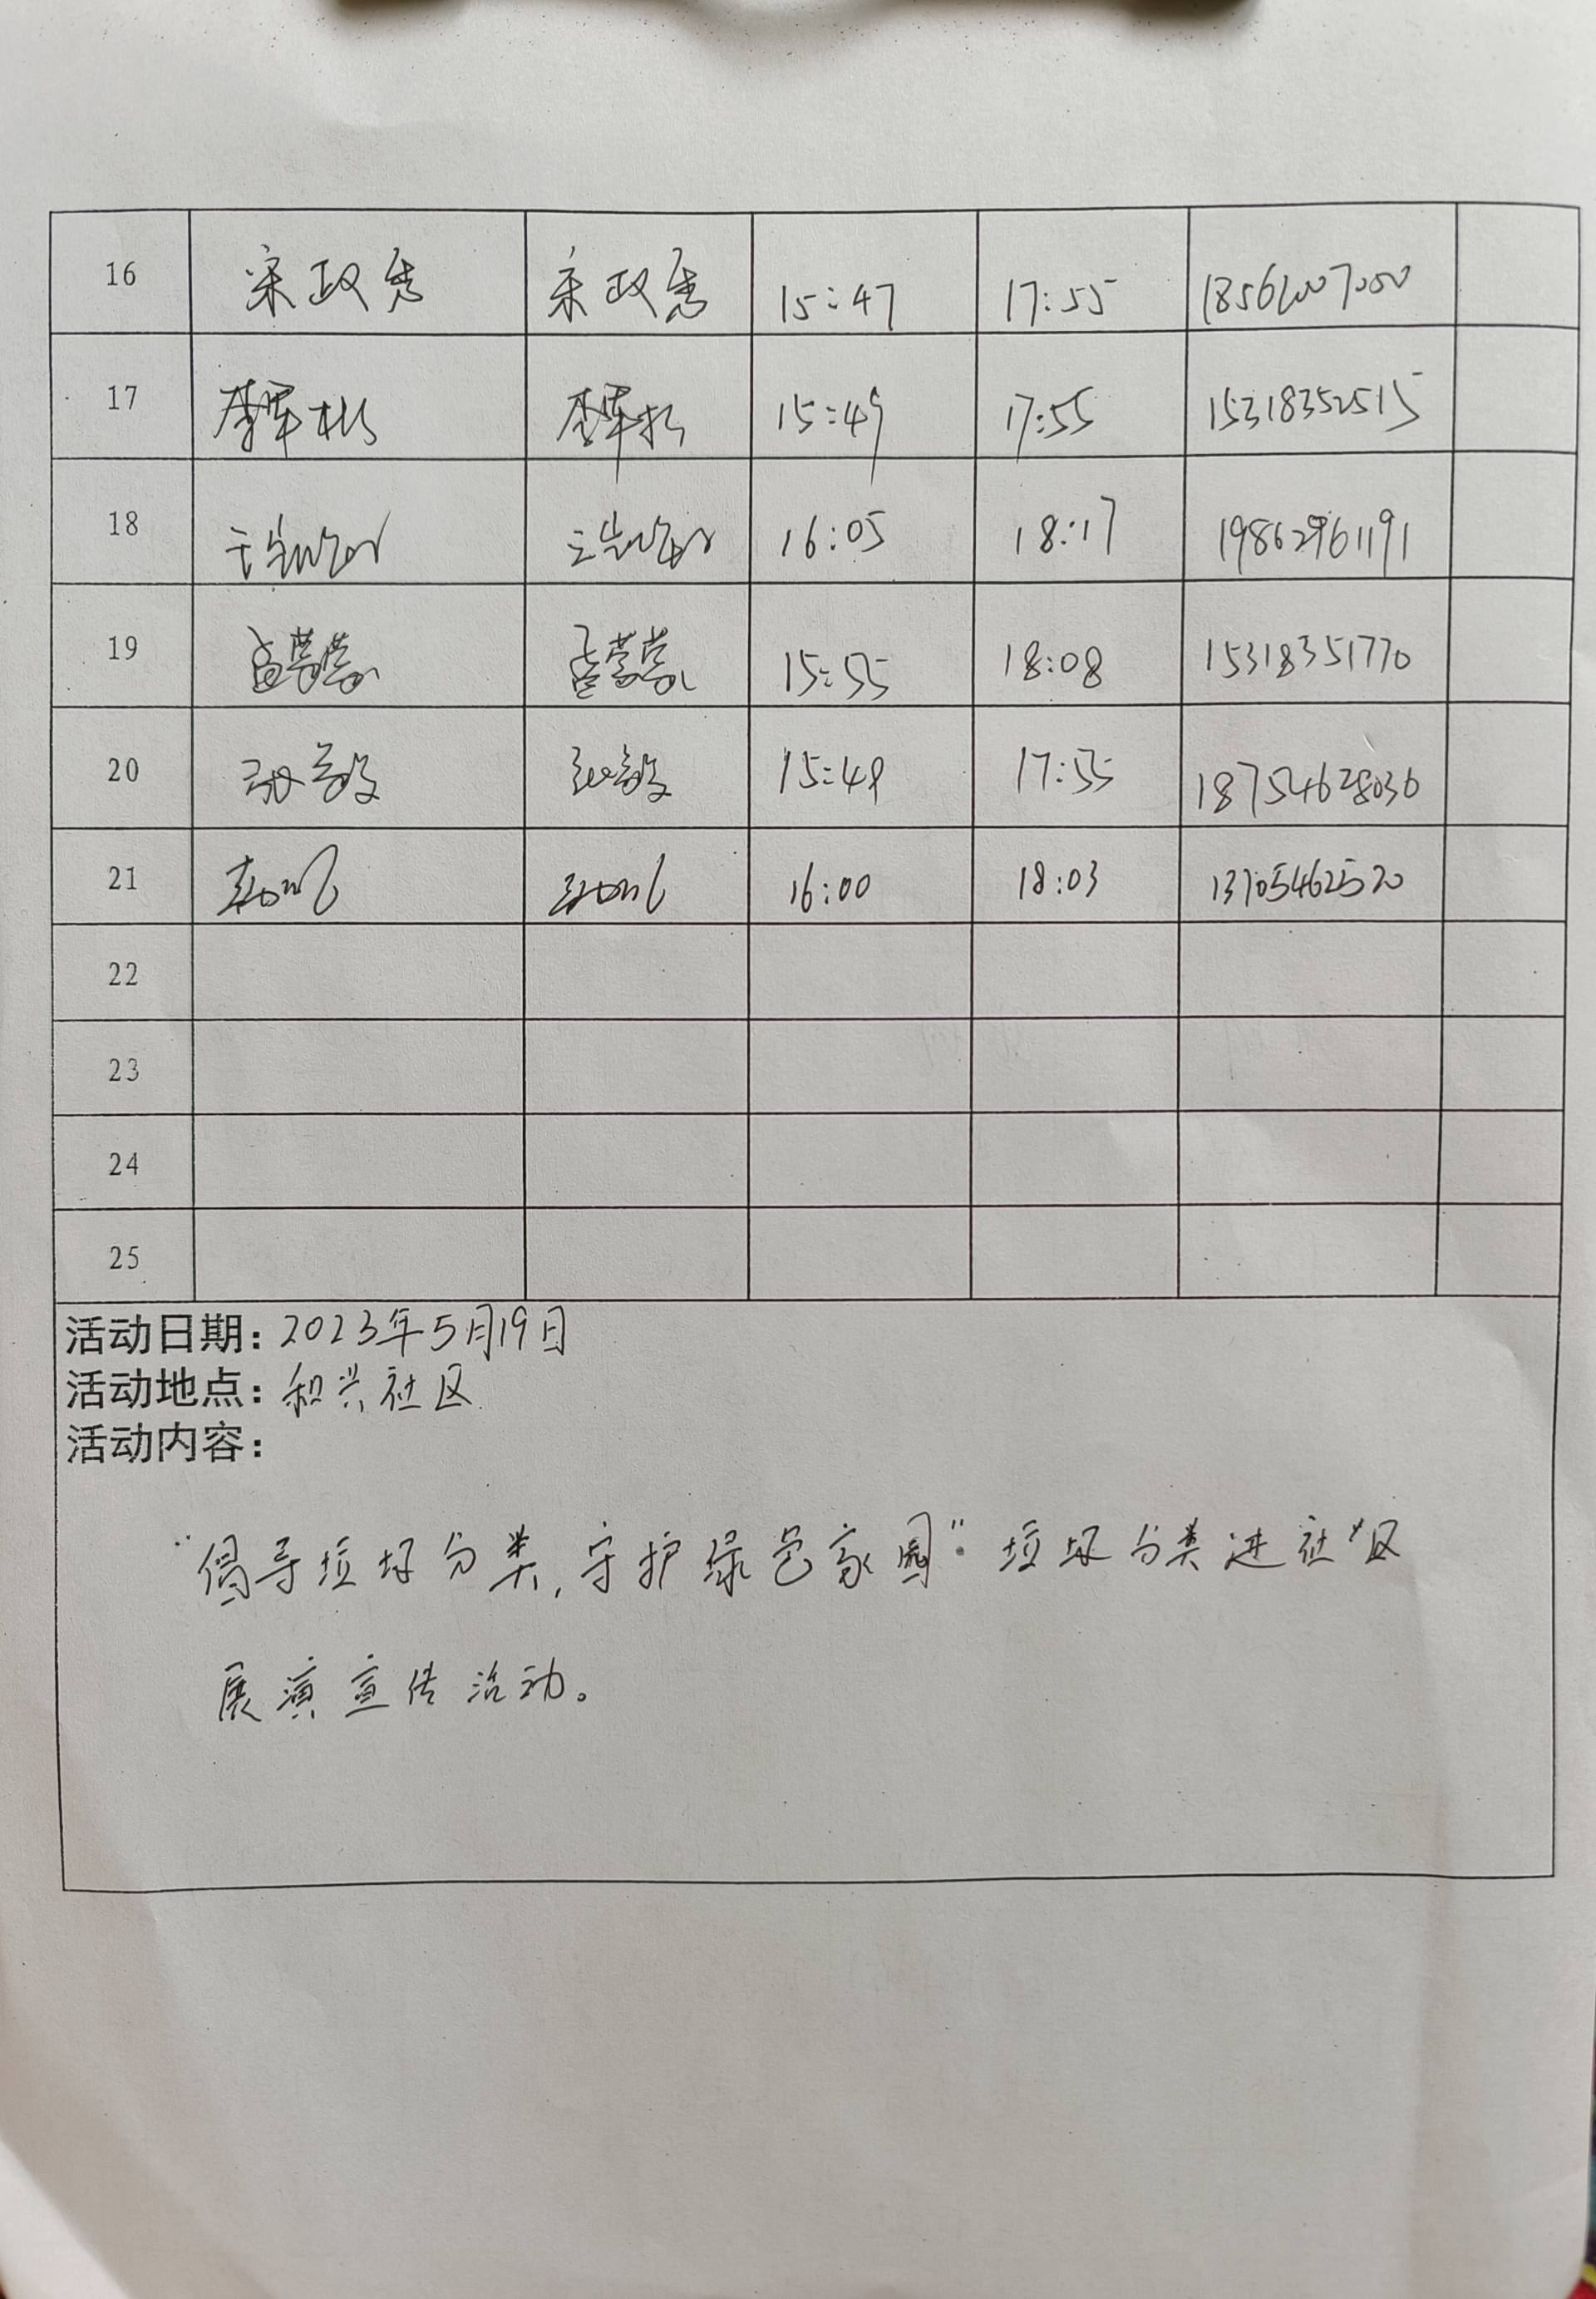 16 宋政秀 宋政秀 15:47 17:55 18562007000
17 15:49 17:55 15318352515
18 16:05 18:17 19862961191
19 孟蒙蒙 孟蒙蒙 15:55 18:08 15318351770
20 张敏 张敏 15:49 17:55 18754628036
21 16:00 18:03 13705462520
22
23
24
25
活动日期：2023年5月19日
活动地点：和兴社区
活动内容：
“倡导垃圾分类,守护绿色家园”垃圾分类进社区
展演宣传活动。